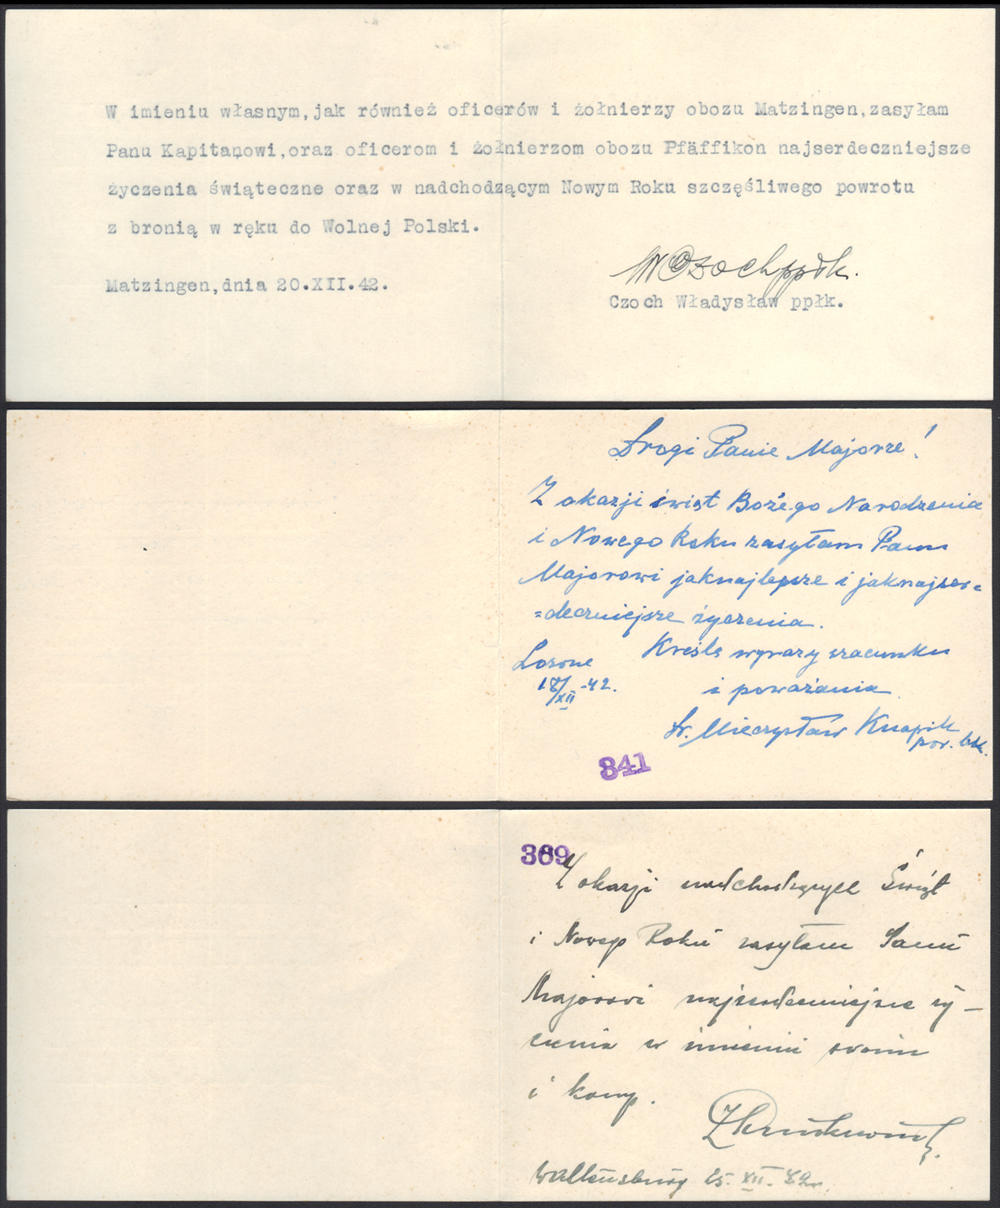 W imieniu własnym,jak również oficerów i żołnierzy obozu Matzingen,zasyłam
Panu Kapitanowi,oraz oficerom i żołnierzom obozu Pfäffikon najserdeczniejsze
życzenia świąteczne oraz w nadchodzącym Nowym Roku szczęśliwego powrotu
z bronią w ręku do Wolnej Polski.
Matzingen,dnia 20.XII.42.
WCzoch ppłk.
Czoch Władysław ppłk.
Drogi Panie Majorze!
Z okazji świąt Bożego Narodzenia
i Nowego Roku zasyłam Panu
Majorowi jaknajlepsze i jaknajser=
=deczniejsze życzenia.
Kreślę wyrazy szacunku
i poważania
Losone
18/XII-42.
Dr. Mieczysław Knapik
por. lek.
841
369
Z okazji nadchodzących Świąt
i Nowego Roku zasyłam Panu
Majorowi najserdeczniejsze ży-
czenia w imieniu swoim
i komp.
25. XII. 42r.